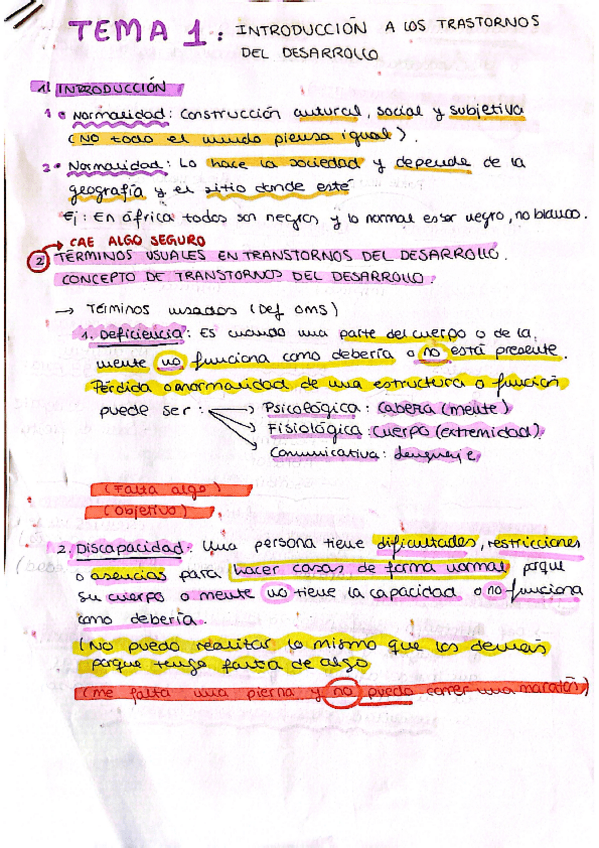 TEMA 1: INTRODUCCIÓN A LOS TRASTORNOS
DEL DESARROLLO
1) INTRODUCCIÓN
1 • Normalidad: Construcción cultural, social y subjetiva
(NO todo el mundo piensa igual).
2 • Normalidad: Lo hace la sociedad y depende de la
geografía y el sitio donde esté
Ej: En África todos son negros y lo normal es ser negro, no blanco.
→ CAE ALGO SEGURO
2 TÉRMINOS USUALES EN TRANSTORNOS DEL DESARROLLO.
CONCEPTO DE TRANSTORNOS DEL DESARROLLO.
→ Términos usados (Def OMS)
1. Deficiencia: Es cuando una parte del cuerpo o de la
mente no funciona como debería o no está presente.
Pérdida o anormalidad de una estructura o función
puede ser: Psicológica: cabeza (mente)
Fisiológica: cuerpo (extremidad).
Comunicativa: lenguaje,
(Falta algo)
(Objetivo)
2. Discapacidad: Una persona tiene dificultades, restricciones
o asencias para hacer cosas de forma normal porque
su cuerpo o mente no tiene la capacidad o no funciona
como debería.
(No puedo realitar lo mismo que los demás
porque tengo falta de algo
(me falta una pierna y no puedo correr una maratón)